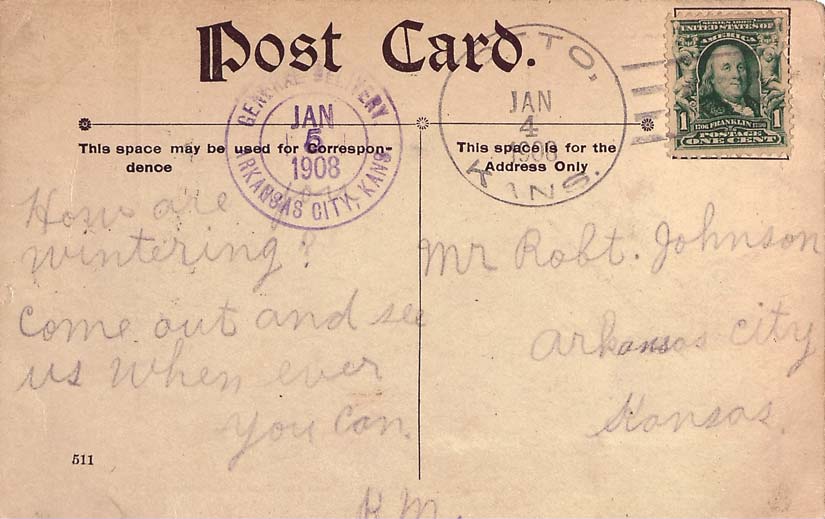 Post Card.
GENERAL DELIVERY
JAN
5
1908
ARKANSAS CITY, KANS.
OTTO,
JAN
4
1908
KANS.
SERIES 1902
UNITED STATES OF AMERICA
1706 FRANKLIN 1790
1 1
POSTAGE
ONE CENT
This space may be used for Correspon-
dence
This space is for the
Address Only
How are you
wintering?
Come out and see
us when ever
you can.
H.M.
511
Mr Robt. Johnson
Arkansas City
Kansas.